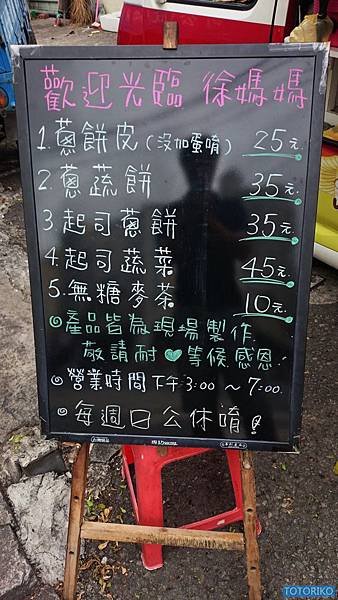 歡迎光臨 徐媽媽
1.蔥餅皮(沒加蛋唷) 25元
2.蔥蔬餅 35元
3.起司蔥餅 35元
4.起司蔬菜 45元
5.無糖麥茶 10元
產品皆為現場製作
敬請耐♥等候感恩!
營業時間下午3:00～7:00
每週日公休唷!
TOTORIKO